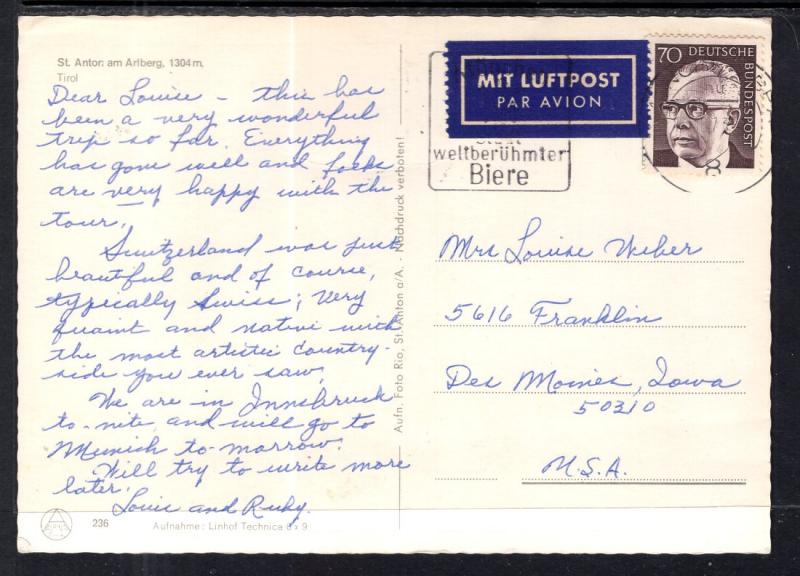 St. Anton am Arlberg, 1304 m,
Tirol
Dear Louise – this has
been a very wonderful
trip so far. Everything
has gone well and folks
are very happy with the
tour.
Switzerland was just
beautiful and of course,
typically Swiss; Very
quaint and native with
the most artistic country-
side you ever saw.
We are in Innsbruck
to-nite and will go to
Munich to-morrow.
Will try to write more
later.
Louis and Ruby.
236
Aufnahme: Linhof Technica 6 x 9
Aufn. Foto Rio, St. Anton a/A. · Nachdruck verboten!
MIT LUFTPOST
PAR AVION
Stadt
weltberühmter
Biere
70 DEUTSCHE
BUNDESPOST
8
Mrs Louise Weber
5616 Franklin
Des Moines, Iowa
50310
U.S.A.